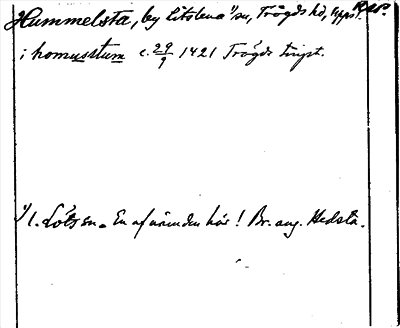 Hummelsta, by Litslena ¹⁾ sn, Trögds hd, Upps. l.
i homusstum c. 29/9 1421 Trögds tingst.
¹⁾ l. Löts sn. En af nämnden här! Br. ang. Hedsta.